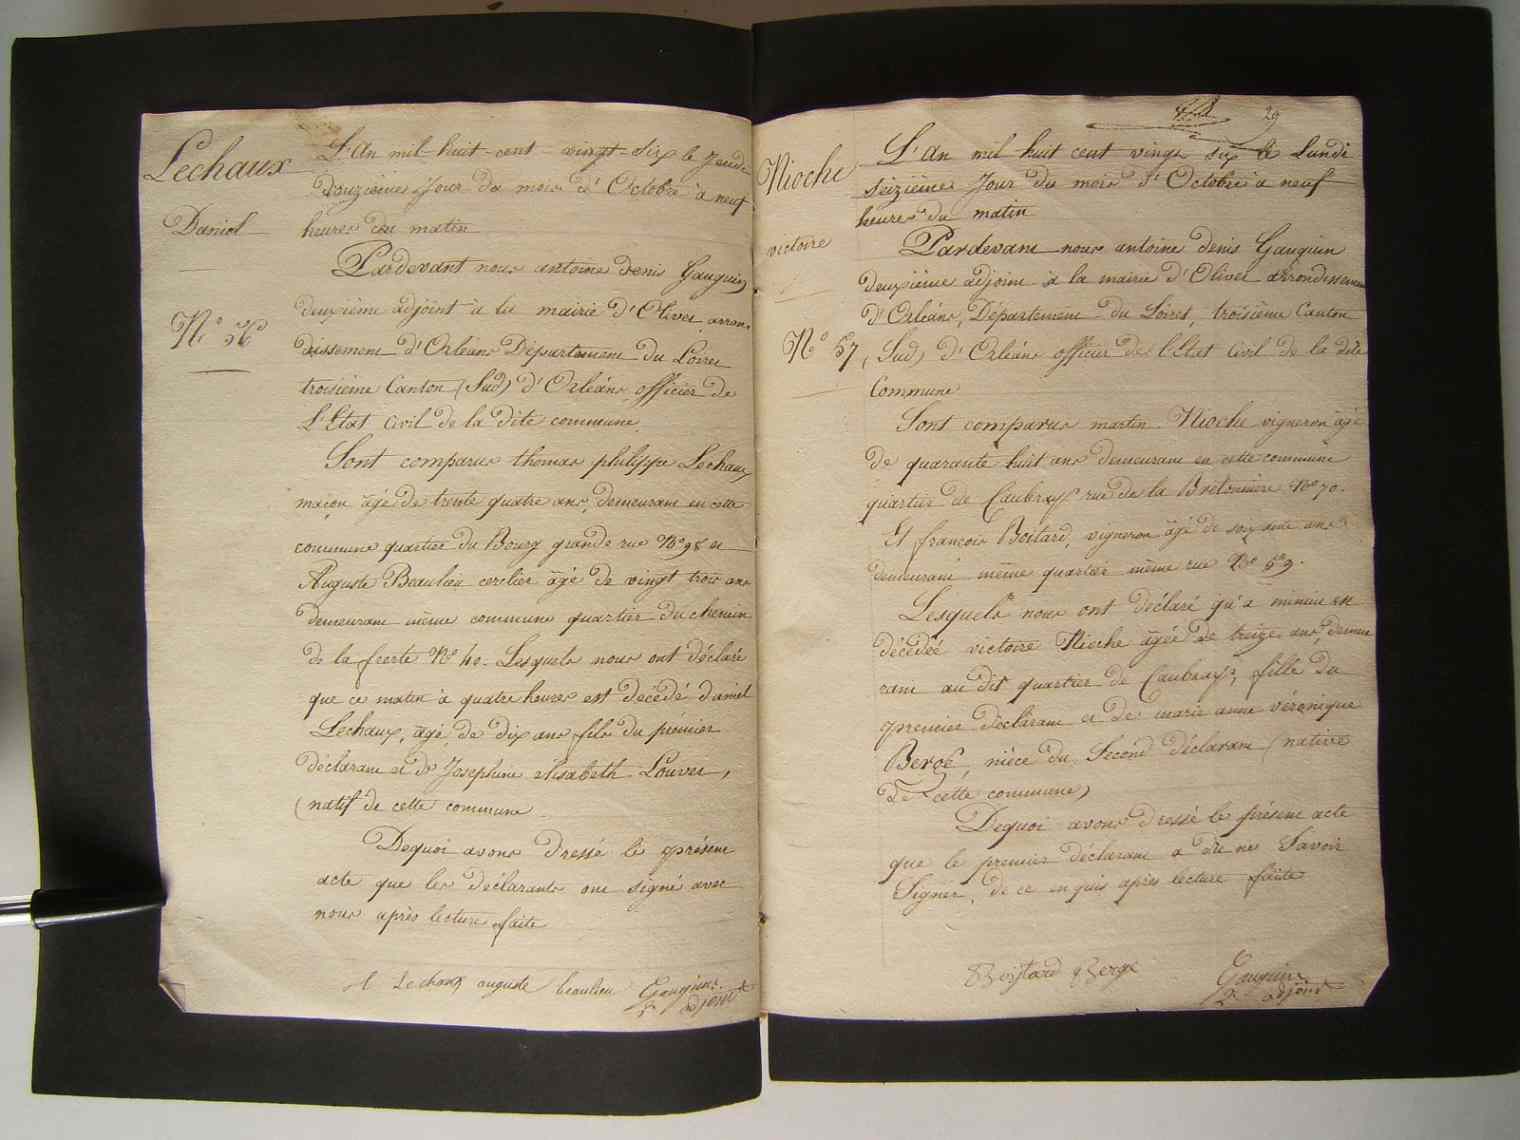 Lechaux
Daniel
N.° 56
L'An mil huit cent vingt-six le Jeudi
douzième Jour du mois d'Octobre à neuf
heures du matin
Pardevant nous antoine denis Gauguin
deuxième adjoint à la mairie d'Olivet, arron-
dissement d'Orléans Département du Loiret
troisième Canton (Sud) d'Orléans officier de
L'Etat Civil de la dite commune.
Sont comparus thomas philippe Lechaux
maçon âgé de trente quatre ans, demeurant en cette
commune quartier du Bourg grande rue N.° 98 et
Auguste Beaulieu cerclier âgé de vingt trois ans
demeurant même commune quartier du chemin
de la ferte N.° 40. Lesquels nous ont déclaré
que ce matin à quatre heures est décédé daniel
Lechaux, âgé de dix ans fils du prémier
déclarant et de Josephine élisabeth Louvet,
(natif de cette commune
Dequoi avons dressé le présent
acte que les déclarants ont signé avec
nous après lecture faite
Lechaux auguste beaulieu Gauguin
adjoint
29
Nioche
victoire
N.° 57
L'An mil huit cent vingt six le Lundi
seizième Jour du mois d'Octobre à neuf
heures du matin
Pardevant nous antoine denis Gauguin
deuxième adjoint à la mairie d'Olivet arrondissement
d'Orléans, Département du Loiret, troisième Canton
(Sud) d'Orléans officier de l'Etat Civil de la dite
Commune
Sont comparus martin Nioche vigneron âgé
de quarante huit ans demeurant en cette commune
quartier de Caubray rue de la Bretonnière N.° 70.
Et françois Boitard, vigneron âgé de soixante ans
demeurant même quartier même rue N.° 59.
Lesquels nous ont déclaré qu'à minuit est
décédée victoire Nioche âgée de treize ans demeu
rant au dit quartier de Caubray, fille du
premier déclarant et de marie anne véronique
Bergé, nièce du Second déclarant (native
De cette commune)
Dequoi avons dressé le présent acte
que le premier déclarant a dit ne Savoir
Signer, de ce enquis après lecture faite
Boistard Berge
Gauguin
2.e adjoint